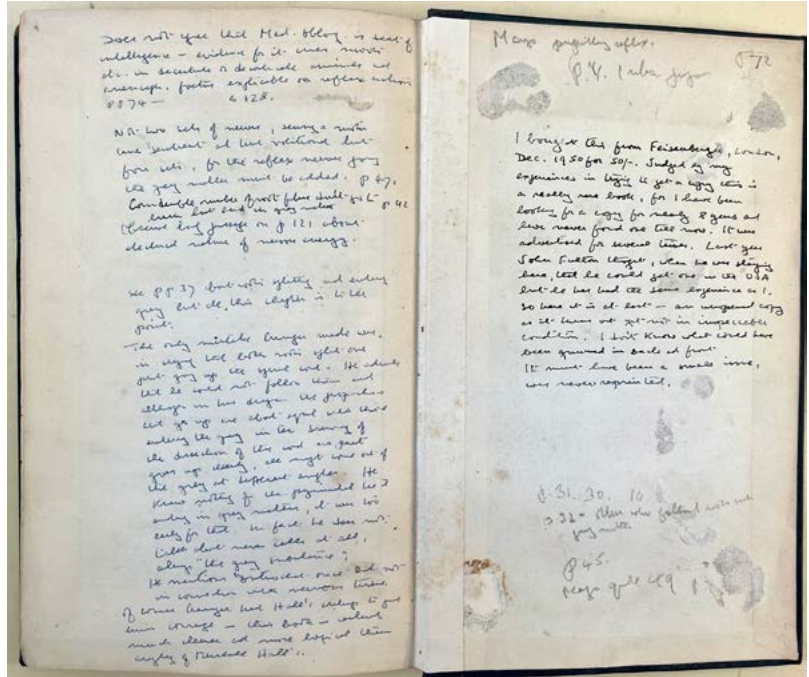 Does not agree that Med. oblong. is seat of
intelligence – evidence for it comes
etc. in decapitate or decerebrate animals and
anenceph. foetus explicable as reflex action
pp 74 – & 128.
Not two sets of nerves, sensory & motor
and sentient and volitional but
four sets, for the reflex nerves going
the grey matter must be added. p 47.
Considerable number of root fibres don't go to p 42
brain but end in grey matter
(Curious long passage on p 121 about
electrical nature of nervous energy.
See pp 37 front roots splitting and entering
grey but all this chapter is to the
point.
The only mistake Grainger made was
in saying that both roots split one
part going up the spinal cord. He admits
that he could not follow them and
although in his diagr. the proportions
that go up are about equal with those
entering the grey in the drawing of
the dissection of the cord no part
goes up clearly, all might come out of
the grey at different angles. He
knew nothing of the pyramidal tract
ending in grey matter, it was too
early for that. In fact he does not
talk about nerve cells at all,
always "the grey substance";
He mentions once but not
in connection with nervous tissue.
Of course Grainger had Hall's writings to give
him courage – this book is certainly
much clearer and more logical than
any of Marshall Hall's.
Mayo pupillary reflex.
p 72
P.V.
I bought this from Feisenberger, London,
Dec. 1950 for 50/-. Judged by my
experiences in trying to get a copy this is
a really rare book, for I have been
looking for a copy for nearly 8 years and
have never found one till now. It was
advertised for several times. Last year
John Fulton thought, when he was staying
here, that he could get one in the USA
but he has had the same experience as I.
So here it is at last – an unopened copy
as it turns out yet not in impeccable
condition. I don't know what could have
been gummed in back and front
It must have been a small issue,
was never reprinted.
p. 31. 30. 10
p 32 – others who followed roots into
grey matter
p 45.
Mayo 49